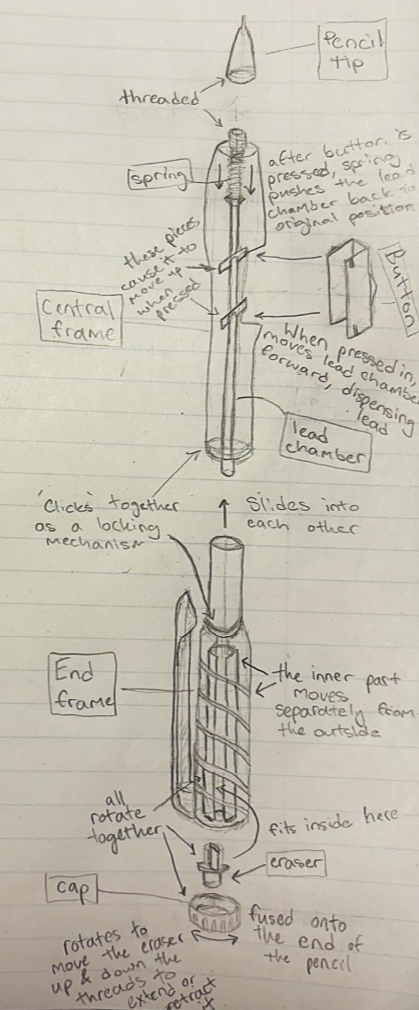 Pencil
tip
threaded
spring
after button is
pressed, spring
pushes the lead
chamber back to
original position
these pieces
cause it to
move up
when
pressed
Button
Central
frame
When pressed in,
moves lead chamber
forward, dispensing
lead
lead
chamber
'Clicks' together
as a locking
mechanism
Slides into
each other
End
frame
the inner part
moves
separately from
the outside
all
rotate
together
fits inside here
eraser
Cap
fused onto
the end of
the pencil
rotates to
move the eraser
up & down the
threads to
extend or
retract
it